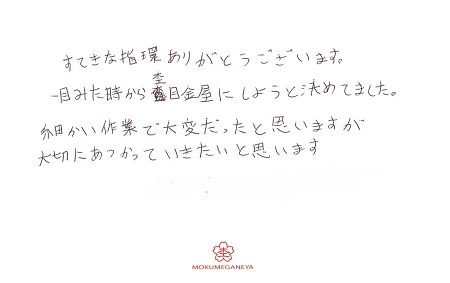 すてきな指環ありがとうございます。
一目みた時から杢目金屋にしようと決めてました。
細かい作業で大変だったと思いますが
大切にあつかっていきたいと思います
MOKUMEGANEYA